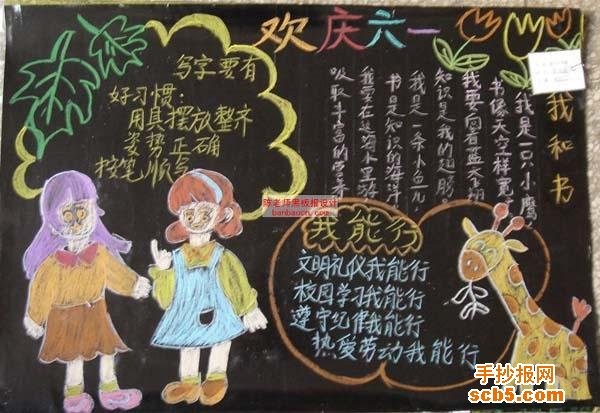 欢庆六一
写字要有
好习惯：
用具摆放整齐
姿势正确
按笔顺写
我和书
我是一只小鹰
书像天空一样宽
我要向着蓝天
知识是我的翅膀。
我是一条小鱼儿，
书是知识的海洋，
我要在这海里游，
吸取丰富的营养
陈老师黑板报设计
banbaocn.com
我能行
文明礼仪我能行
校园学习我能行
遵守纪律我能行
热爱劳动我能行
手抄报网
scb5.com